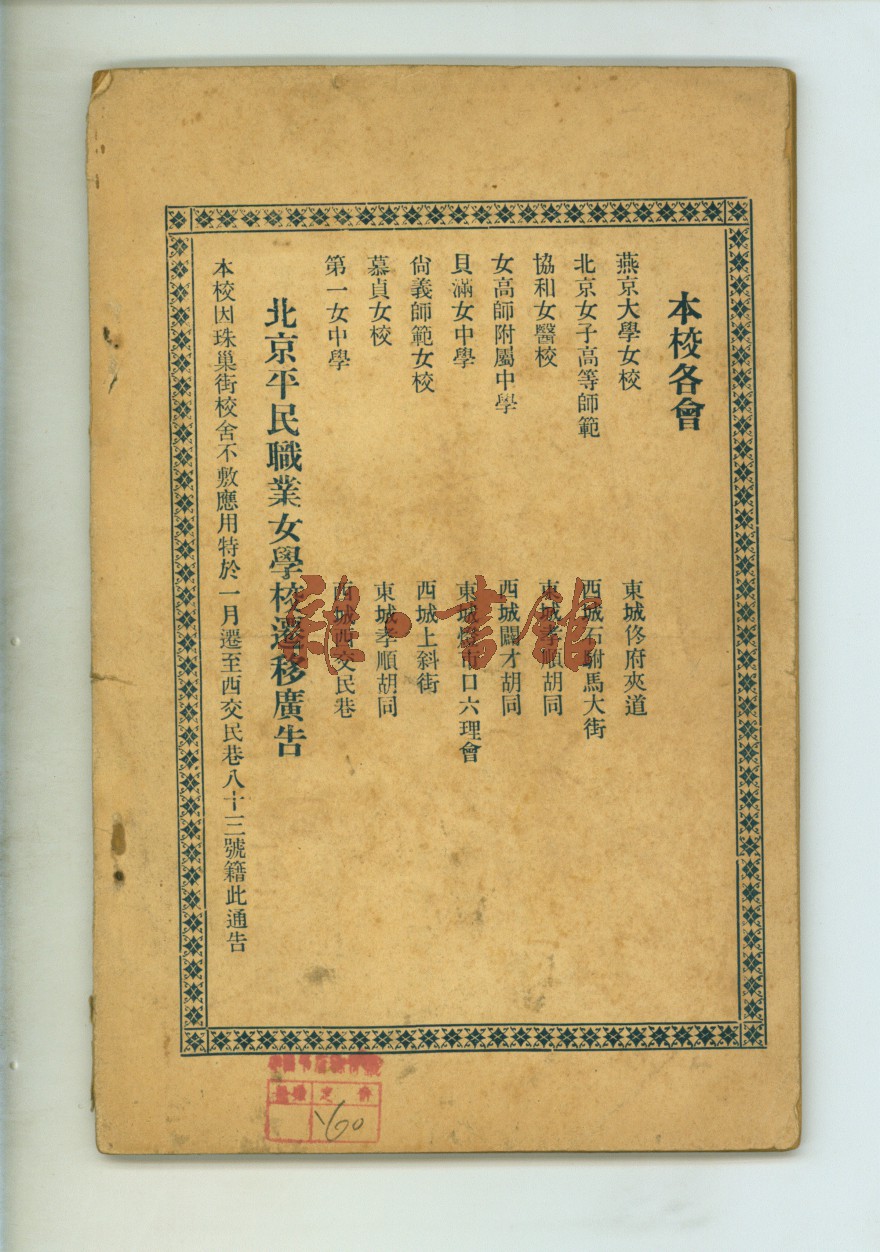 本校各會
燕京大學女校 東城佟府夾道
北京女子高等師範 西城石駙馬大街
協和女醫校 東城孝順胡同
女高師附屬中學 西城闢才胡同
貝滿女中學 東城燈市口六理會
尙義師範女校 西城上斜街
慕貞女校 東城孝順胡同
第一女中學 西城西交民巷
北京平民職業女學校遷移廣告
本校因珠巢街校舍不敷應用特於一月遷至西交民巷八十三號籍此通告
雅·書館
定價
60